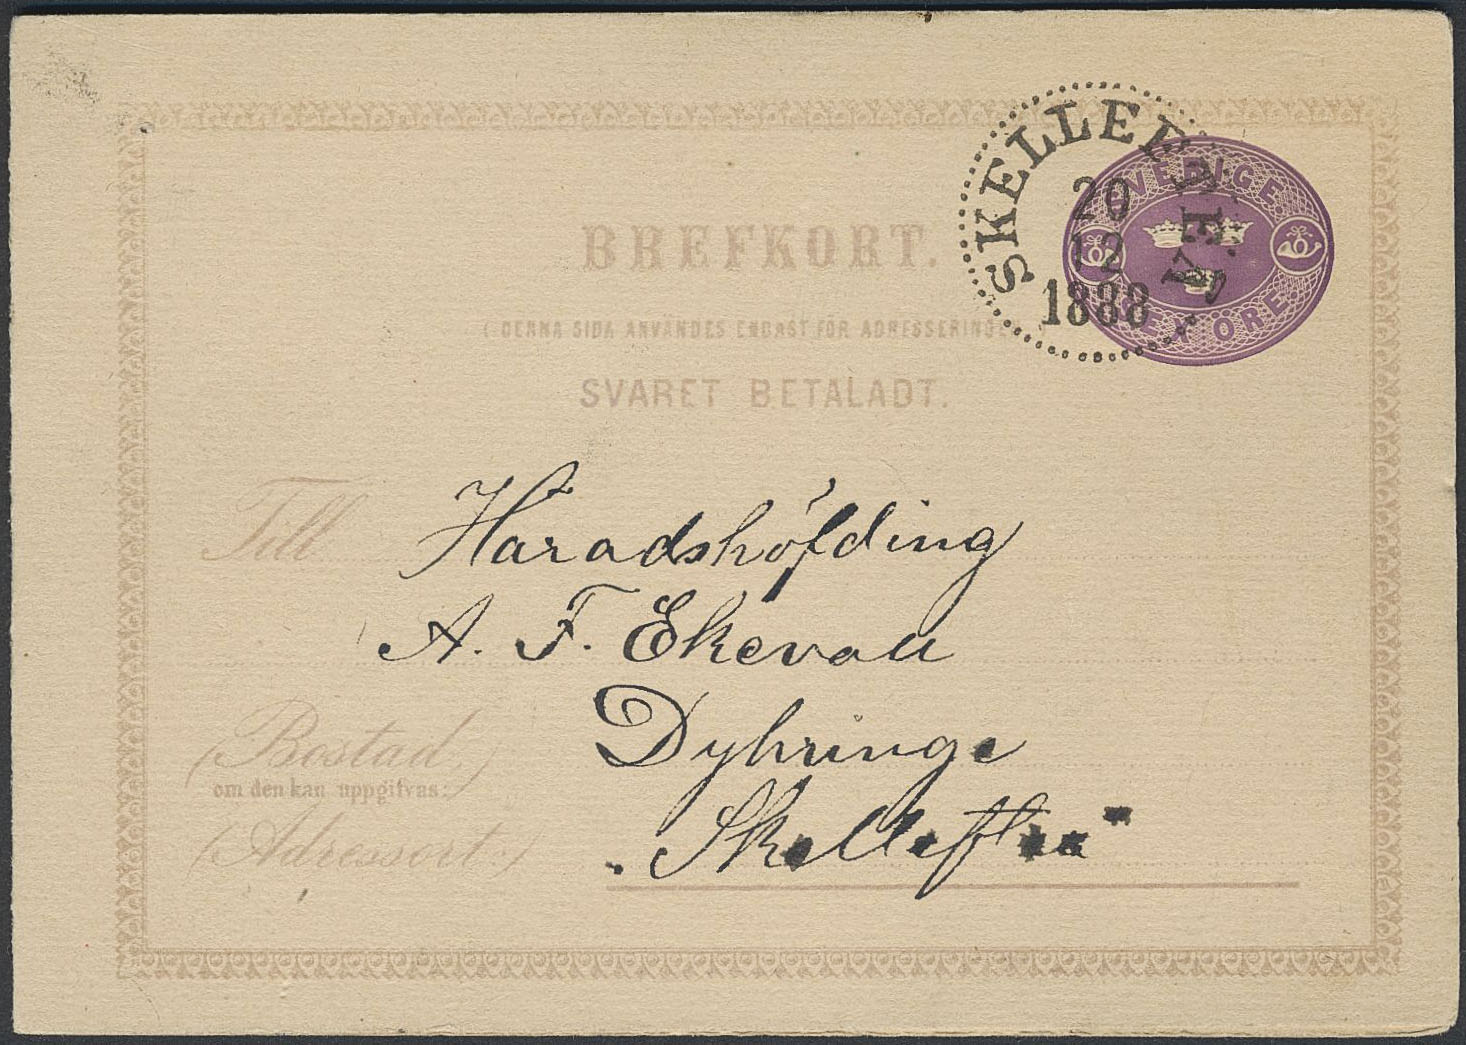 BREFKORT.
(DENNA SIDA ANVÄNDES ENDAST FÖR ADRESSERINGEN
SVARET BETALADT.
SKELLEFTEÅ
20
12
1888
SVERIGE
SEX ÖRE
Till
Häradshöfding
A. F. Ekevall
(Bostad
om den kan uppgifvas:)
Dyhringe
(Adressort:)
Skellefteå